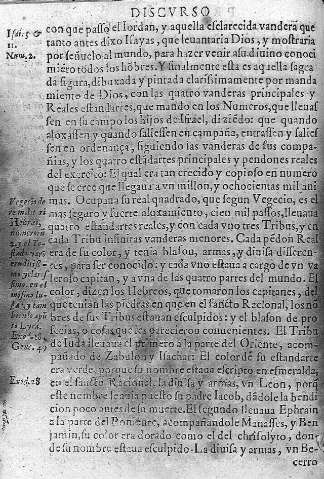 DISCVRSO
con que passo el Iordan, y aquella esclarecida vandera que
tanto antes dixo Isayas, que leuantaria Dios, y mostraria
por señuelo al mundo, para hazer venir a su diuino conoci
miẽto todos los hõbres. Y finalmente esta es aquella sagra
da figura, dibuxada y pintada clarissimamente por manda
miento de Dios, con las quatro vanderas principales y
Reales estandartes, que mando en los Numeros, que lleuas
sen en su campo los hijos de Israel, diziẽdo: que quando
aloxassen y quando saliessen en campaña, entrassen y salies
sen en ordenança, siguiendo las vanderas de sus compa
ñias, y los quatro estãdartes principales y pendones reales
del exercito: El qual era tan crecido y copioso en numero
que se cree que llegaua a vn millon, y ochocientas mil ani
mas. Ocupaua su real quadrado, que segun Vegecio, es el
mas seguro y fuerte aloxamiento, cien mil passos, lleuaua
quatro estandartes reales, y con cada vno tres Tribus, y en
cada Tribu infinitas vanderas menores. Cada pẽdon Real
era de su color, y tenia blasou, armas, y diuisa differen
tes, para ser conocido, y cada vno estaua a cargo de vn va
leroso capitan, y a vna de las quatro partes del mundo. El
color, dizen los Hebreos, que tomaron los capitanes, del
que tenian las piedras en que en el sancto Racional, los nõ
bres de sus Tribus estauan esculpidos: y el blason de pro
fecias, o cosas que les parecieron conuenientes. El Tribu
de Iuda lleuaua el primero a la parte del Oriente, acom
pañado de Zabulon y Isachar: El color de su estandarte
era verde, porque su nombre estaua escripto en esmeralda,
en el sancto Racional, la diuisa y armas, vn Leon, porq̃
este nombre le auia puesto su padre Iacob, dãdole la bendi
cion poco antes de su muerte. El segundo lleuaua Ephrain
a la parte del Poniente, acompañandole Manasses, y Ben
jamin, su color era dorado como el del chrisolyto, don-
de su nombre estaua esculpido. La diuisa y armas, vn Be-
cerro
Isai. 5 &
11.
Num. 2.
Exod. 28
Gene. 49
Exod. 28